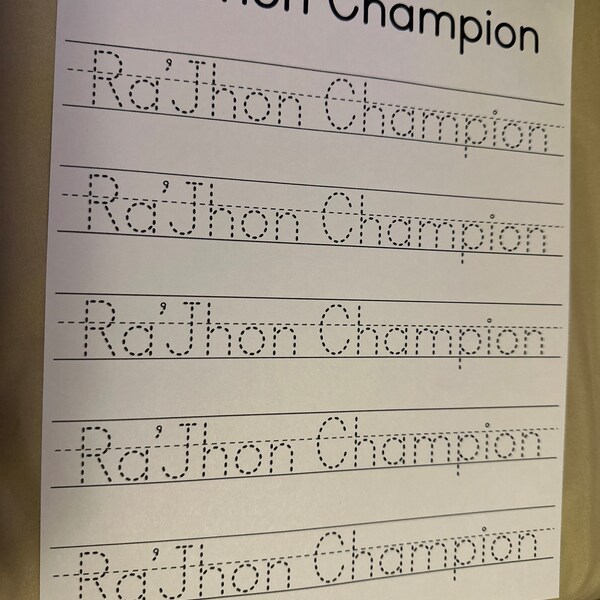 Champion
Ra'Jhon Champion
Ra'Jhon Champion
Ra'Jhon Champion
Ra'Jhon Champion
Ra'Jhon Champion